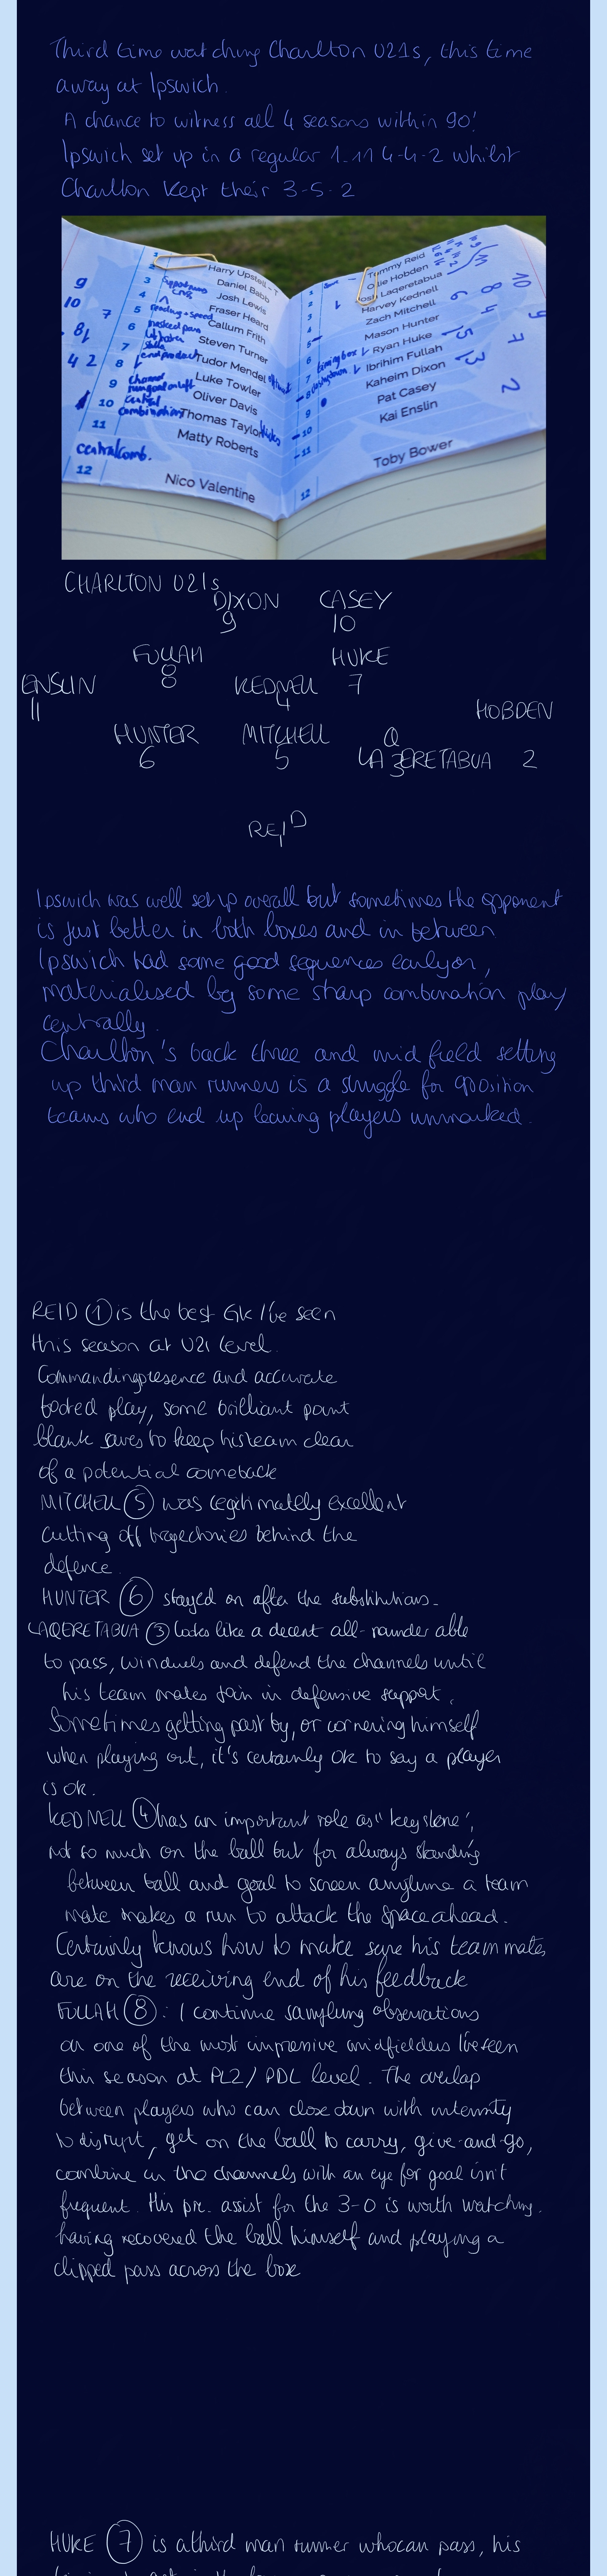 Third time watching Charlton U21s, this time
away at Ipswich.
A chance to witness all 4 seasons within 90'
Ipswich set up in a regular 1-11 4-4-2 whilst
Charlton kept their 3-5-2
Harry Upsteil-T
Daniel Babb
Josh Lewis
Fraser Heard
Callum Frith
Steven Turner
Tudor Mendel
Luke Towler
Oliver Davis
Thomas Taylor
Matty Roberts
central comb.
12
Nico Valentine
Tommy Reid
Hobden
Laqeretabua
Harvey Kednell
Zach Mitchell
Mason Hunter
Ryan Huke
Ibrihim Fullah
Kaheim Dixon
Pat Casey
Kai Enslin
12
Toby Bower
CHARLTON U21s
DIXON CASEY
9 10
FULLAH HUKE
8 7
ENSLIN KEDNELL
11 4
HOBDEN
HUNTER MITCHELL LAQERETABUA 2
6 5 3
REID
Ipswich was well set up overall but sometimes the opponent
is just better in both boxes and in between
Ipswich had some good sequences early on,
materialised by some sharp combination play
centrally.
Charlton's back three and midfield setting
up third man runners is a struggle for opposition
teams who end up leaving players unmarked.
REID 1 is the best GK I've seen
this season at U21 level.
Commanding presence and accurate
footed play, some brilliant point
blank saves to keep his team clear
of a potential comeback
MITCHELL 5 was legitimately excellent
cutting off trajectories behind the
defence.
HUNTER 6 stayed on after the substitutions.
LAQERETABUA 3 looks like a decent all-rounder able
to pass, win duels and defend the channels until
his team mates join in defensive support.
Sometimes getting past by, or cornering himself
when playing out, it's certainly ok to say a player
is ok.
KEDNELL 4 has an important role as "keystone",
not so much on the ball but for always standing
between ball and goal to screen anytime a team
mate makes a run to attack the space ahead.
Certainly knows how to make sure his team mates
are on the receiving end of his feedback
FULLAH 8: I continue sampling observations
on one of the most impressive midfielders I've seen
this season at PL2/PDL level. The overlap
between players who can close down with intensity
to disrupt, get on the ball to carry, give-and-go,
combine in the channels with an eye for goal isn't
frequent. His pre-assist for the 3-0 is worth watching.
having recovered the ball himself and playing a
clipped pass across the box
HUKE 7 is a third man runner who can pass, his